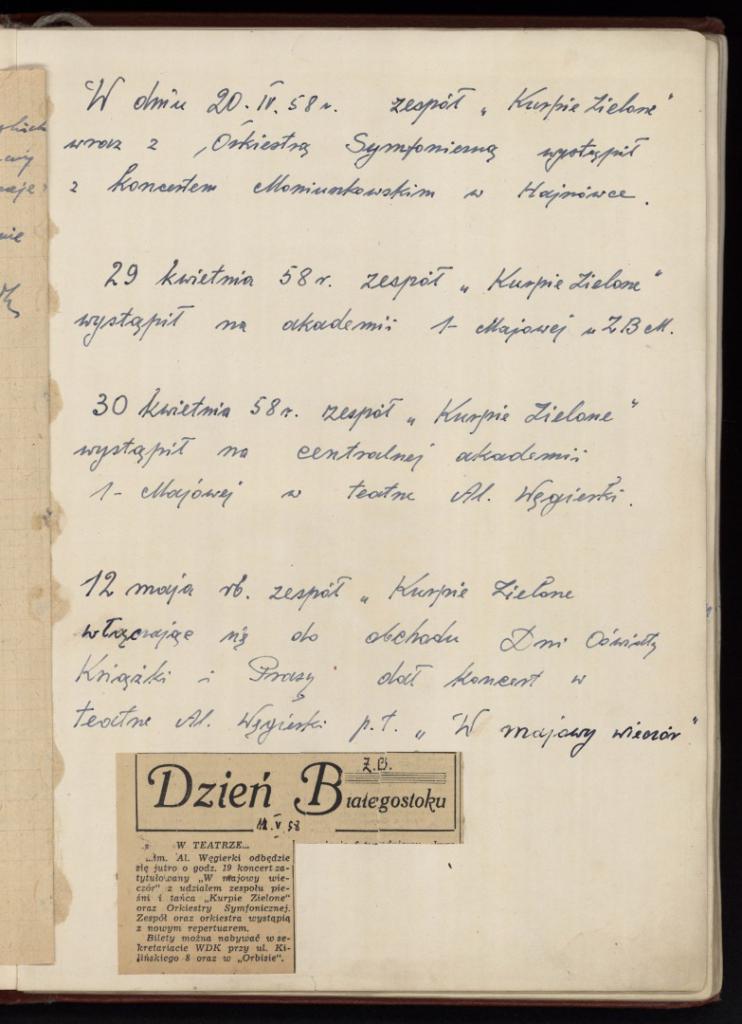 W dniu 20.IV.58 r. zespół „Kurpie Zielone"
wraz z Orkiestrą Symfoniczną wystąpił
z koncertem Moniuszkowskim w Hajnówce.
29 kwietnia 58 r. zespół „Kurpie Zielone"
wystąpił na akademii 1-Majowej u Z B M.
30 kwietnia 58 r. zespół „Kurpie Zielone"
wystąpił na centralnej akademii
1-Majowej w teatrze Al. Węgierki.
12 maja rb. zespół „Kurpie Zielone
włączając się do obchodu Dni Oświaty
Książki i Prasy dał koncert w
teatrze Al. Węgierki p.t. „W majowy wieczór"
Z.B.
Dzień Białegostoku
V 58
W TEATRZE...
...im. Al. Węgierki odbędzie
się jutro o godz. 19 koncert za-
tytułowany „W majowy wie-
czór" z udziałem zespołu pie-
śni i tańca „Kurpie Zielone"
oraz Orkiestry Symfonicznej.
Zespół oraz orkiestra wystąpią
z nowym repertuarem.
Bilety można nabywać w se-
kretariacie WDK przy ul. Ki-
lińskiego 8 oraz w „Orbisie".